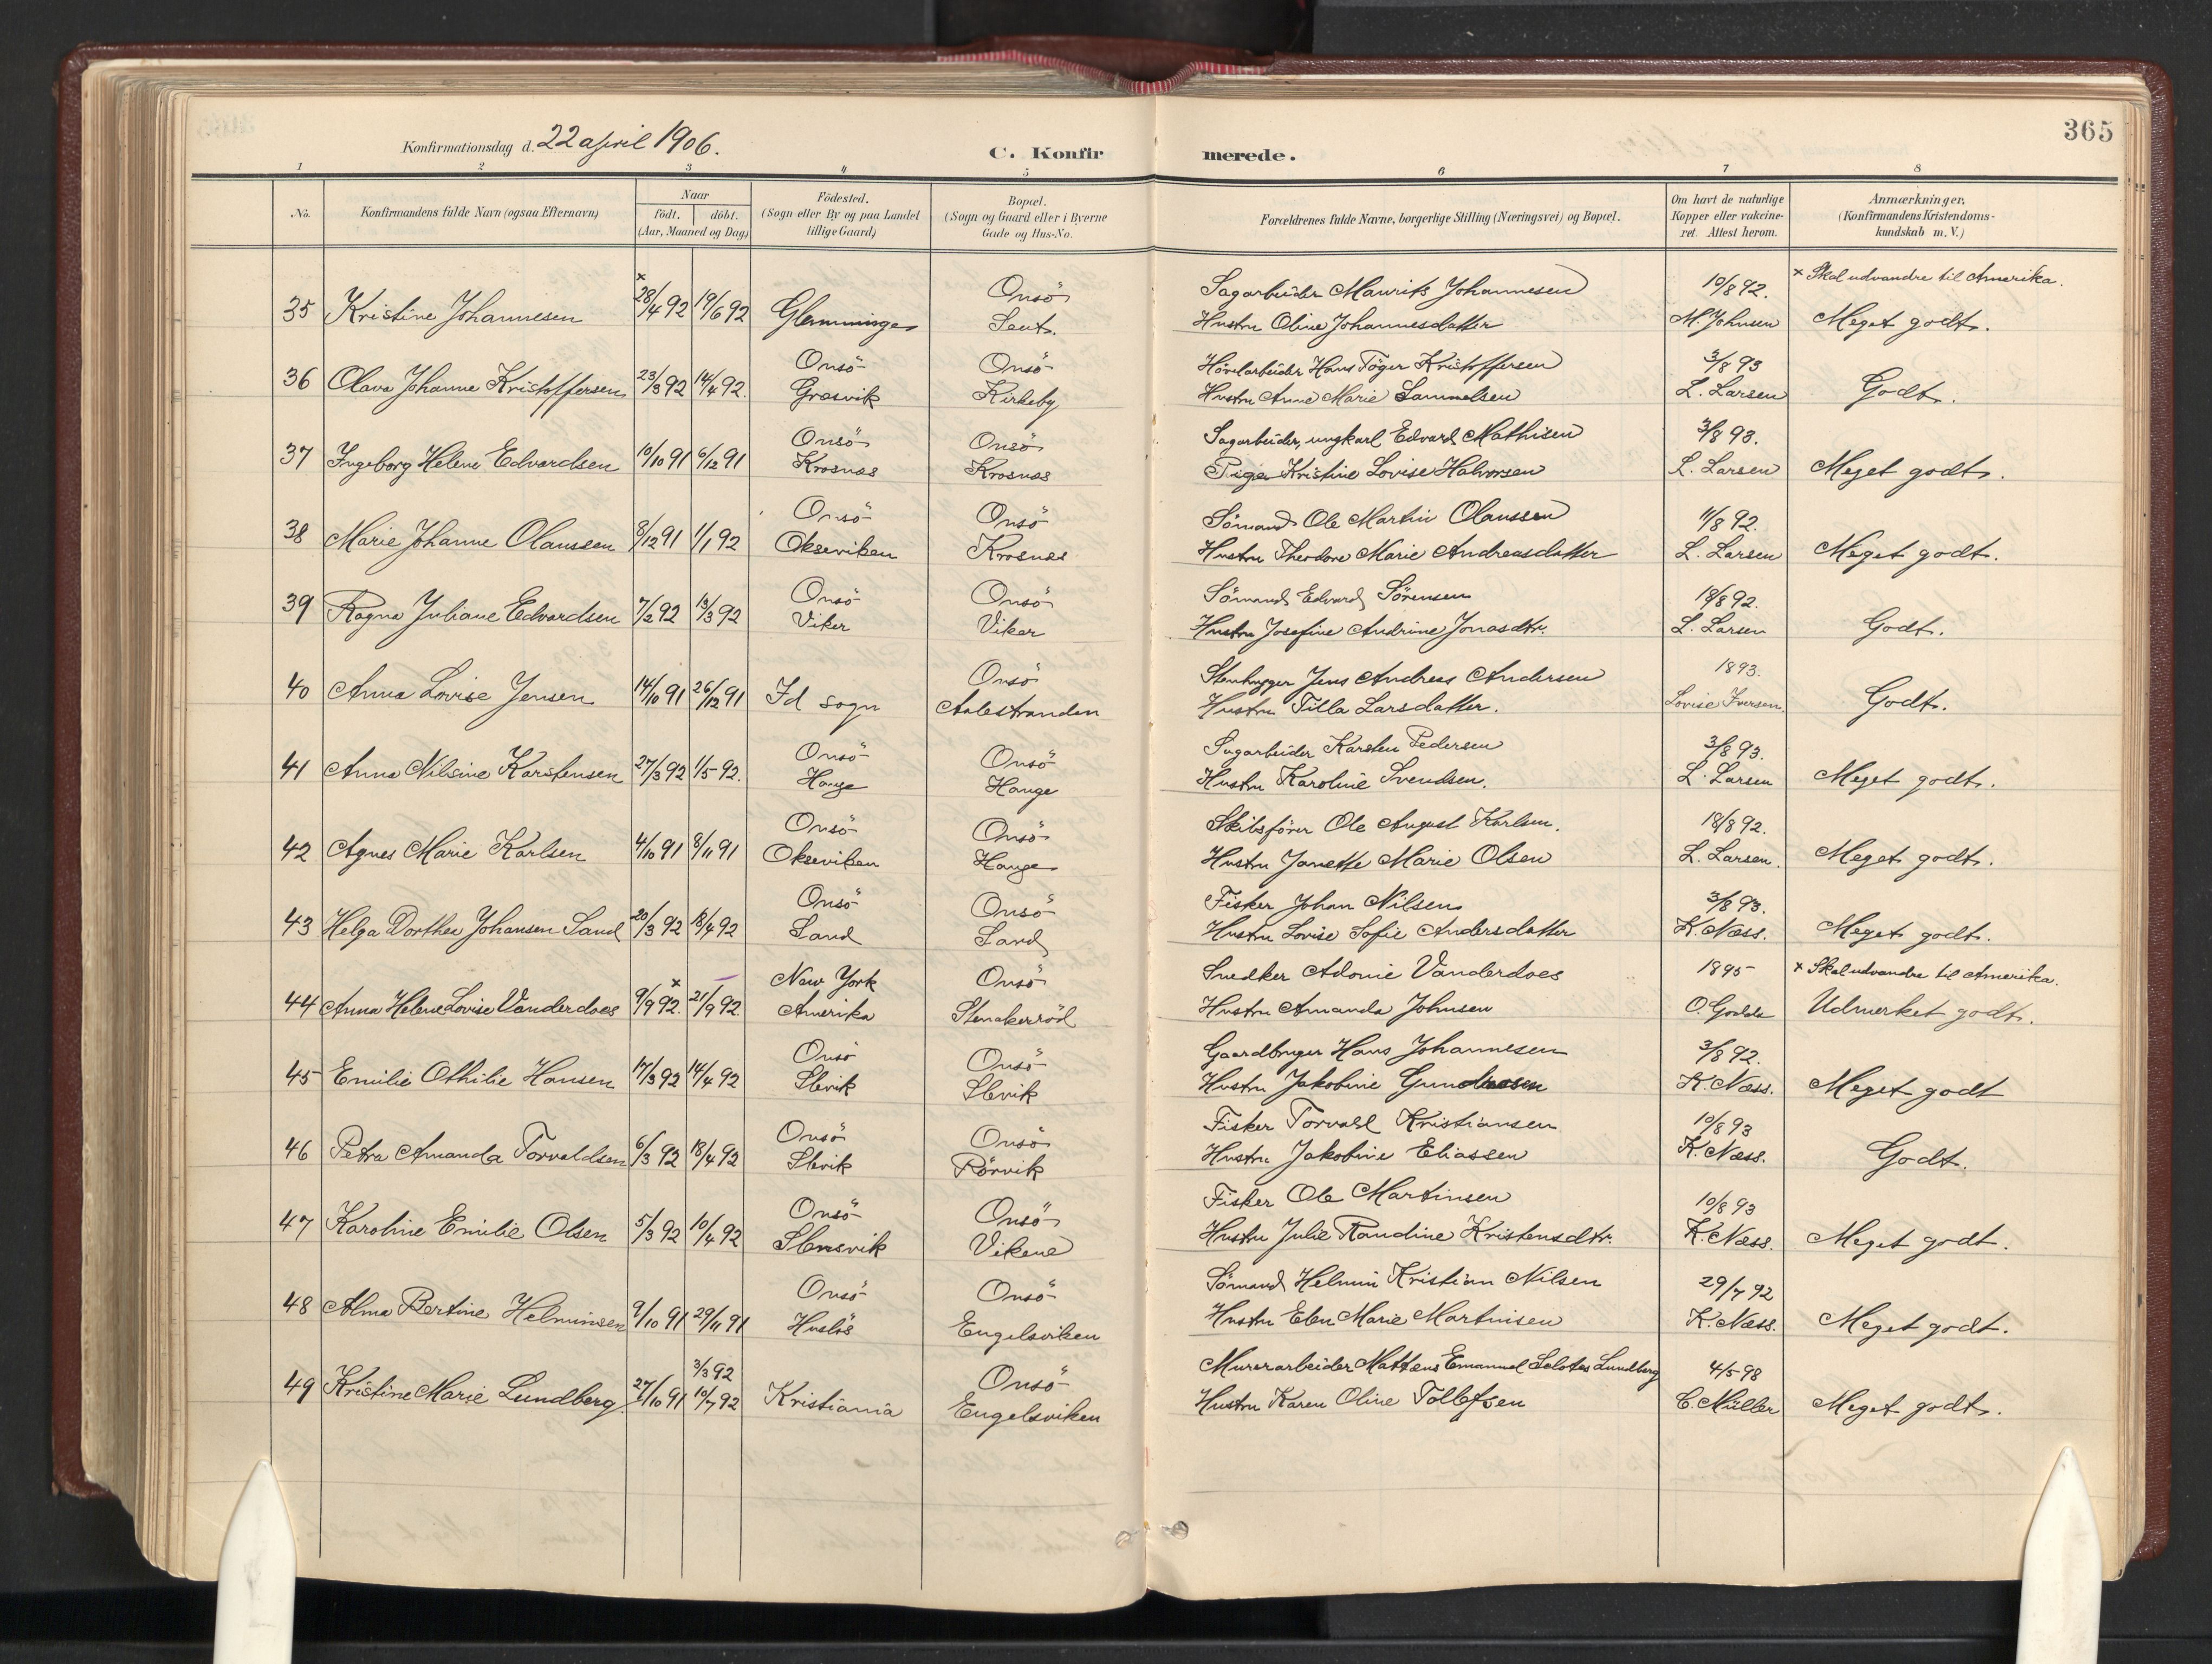 365
Konfirmationsdag d. 22 april 1906.
C. Konfirmerede.
1 2 3 4 5 6 7 8
No.
Konfirmandens fulde Navn (ogsaa Efternavn)
Naar
födt. döbt.
(Aar, Maaned og Dag)
Födested.
(Sogn eller By og paa Landet
tillige Gaard)
Bopæl.
(Sogn og Gaard eller i Byerne
Gade og Hus-No.
Forældrenes fulde Navne, borgerlige Stilling (Næringsvei) og Bopæl.
Om havt de naturlige
Kopper eller vakcine-
ret. Attest herom.
Anmærkninger,
(Konfirmandens Kristendoms-
kundskab m. V.)
× Onsö Sagarbeider Maurits Johannesen 10/8 92. × Skal udvandre til Amerika.
35 Kristine Johannesen 28/4 92 19/6 92 Glemminge Hustru Oline Johannesdatter M. Johnsen Meget godt.
Onsö Onsö Hans Töger Kristoffersen 3/8 93
36 Olava Johanne Kristoffersen 23/3 92 14/4 92. Gresvik Kirkeby Hustru Anne Marie Samuelsen L. Larsen Godt.
Onsö Onsö Sagarbeider, ungkarl Edvard Mathisen 3/8 93.
37 Ingeborg Helene Edvardsen 10/10 91 6/12 91 Krosnes Krosnes Pige Kristine Lovise Halvorsen L. Larsen Meget godt.
Onsö Onsö Sömand Ole Martin Olaussen 11/8 92.
38 Marie Johanne Olaussen 8/12 91 1/1 92 Okseviken Krosnes Hustru Theodore Marie Andreasdatter L. Larsen Meget godt.
Onsö Onsö Sömand Edvard Sörensen 18/8 92.
39 Ragna Juliane Edvardsen 7/2 92 13/3 92 Viker Viker Hustru Josefine Andrine Jonasdtr. L. Larsen Godt.
Onsö Stenhugger Jens Andreas Andersen 1893.
40 Anna Lovise Jensen 14/10 91 26/12 91 Id sogn Aalestranden Hustru Tilla Larsdatter. Lovise Iversen. Godt.
Onsö Onsö Sagarbeider Karsten Pedersen 3/8 93.
41 Anna Nilsine Karstensen 27/3 92 1/5 92. Hauge Hauge Hustru Karoline Svendsen. L. Larsen Meget godt.
Onsö Onsö Skibsförer Ole August Karlsen. 18/8 92.
42 Agnes Marie Karlsen 4/10 91 8/11 91 Okseviken Hauge Hustru Janette Marie Olsen L. Larsen. Meget godt.
Onsö Onsö Fisker Johan Nilsen 3/8 93.
43 Helga Dorthea Johansen Sand 20/3 92 18/4 92 Sand Sand Hustru Lovise Sofie Andersdatter K. Næss. Meget godt.
× New York Onsö Snedker Adonie Vanderdoes 1895 × Skal udvandre til Amerika.
44 Anna Helene Lovise Vanderdoes 9/9 92. 21/9 92. Amerika Stenakerröd Hustru Amanda Johnsen Udmerket godt.
Onsö Onsö Gaardbruger Hans Johannesen 3/8 92.
45 Emilie Othilie Hansen 17/3 92 14/4 92 Slevik Slevik Hustru Jakobine K. Næss. Meget godt
Onsö Onsö Fisker Torvald Kristiansen 10/8 93
46 Petra Amanda Torvaldsen 6/3 92 18/4 92 Slevik Rörvik Hustru Jakobine Eliassen K. Næss. Godt.
Onsö Onsö Fisker Ole Martinsen 10/8 93
47 Karoline Emilie Olsen 5/3 92 10/4 92 Slevsvik Vikene Hustru Julie Randine Kristensdtr. K. Næss. Meget godt.
Onsö Onsö Sömand Helmin Kristian Nilsen 29/7 92
48 Alma Bertine Helminsen 9/10 91 29/11 91 Huslös Engelsviken Hustru Elen Marie Martinisen K. Næss. Meget godt.
3/3 92 Onsö Murerarbeider Mattæus Emanuel Lundberg 4/5 98
49 Kristine Marie Lundberg. 27/10 91 10/7 92 Kristiania Engelsviken Hustru Karen Oline Tollefsen C. Müller Meget godt.